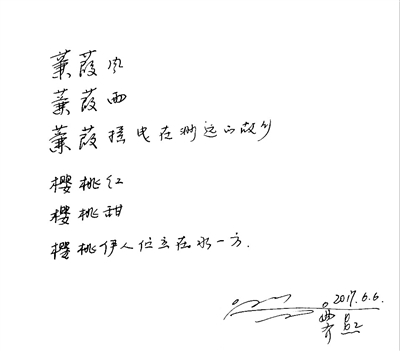 蒹葭风
蒹葭雨
蒹葭摇曳在渺远的故乡
樱桃红
樱桃甜
樱桃伊人伫立在水一方.
2017.6.6.